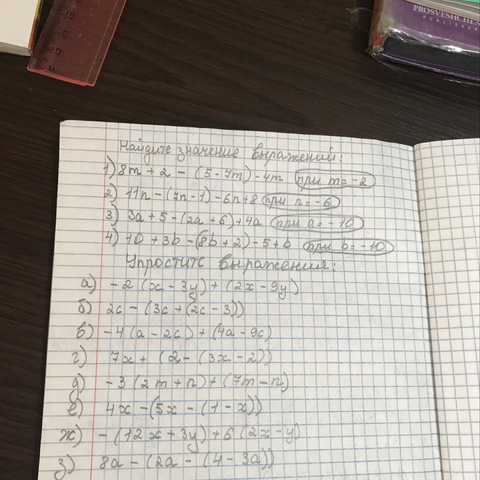 PROSVESHCHEN
Найдите значение выражений:
1) 8m + 2 - (5 - 7m) - 4m (при m = -2)
2) 11n - (7n - 1) - 6n + 8 (при n = -6)
3) 3a + 5 - (2a + 6) + 4a (при a = -10)
4) 10 + 3b - (8b + 2) - 5 + b (при b = -10)
Упростите выражения:
а) -2 (x - 3y) + (2x - 9y)
б) 2c - (3c + (2c - 3))
в) -4 (a - 2c) + (4a - 9c)
г) 7x + (2 - (3x - 2))
д) -3 (2m + n) + (7m - n)
е) 4x - (5x - (1 - x))
ж) - (12x + 3y) + 6 (2x - y)
з) 8a - (2a - (4 - 3a))